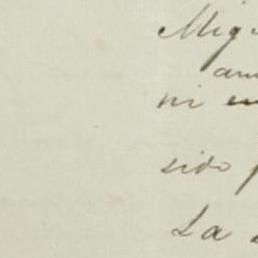 Migu
am
ni en
sido p
La